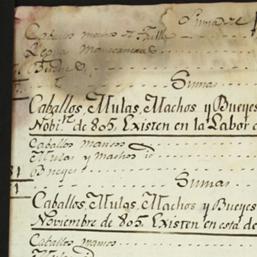 Suma
Caballos mansos
Yeguas
Bueyes
Suman
Caballos, Mulas, Machos y Bueyes
Nobi.re de 805, Existen en la Labor d
Caballos mansos
Mulas y Machos id
Bueyes
Suman
Caballos, Mulas, Machos y Bueyes
Noviembre de 805. Existen en esta de
Caballos mansos